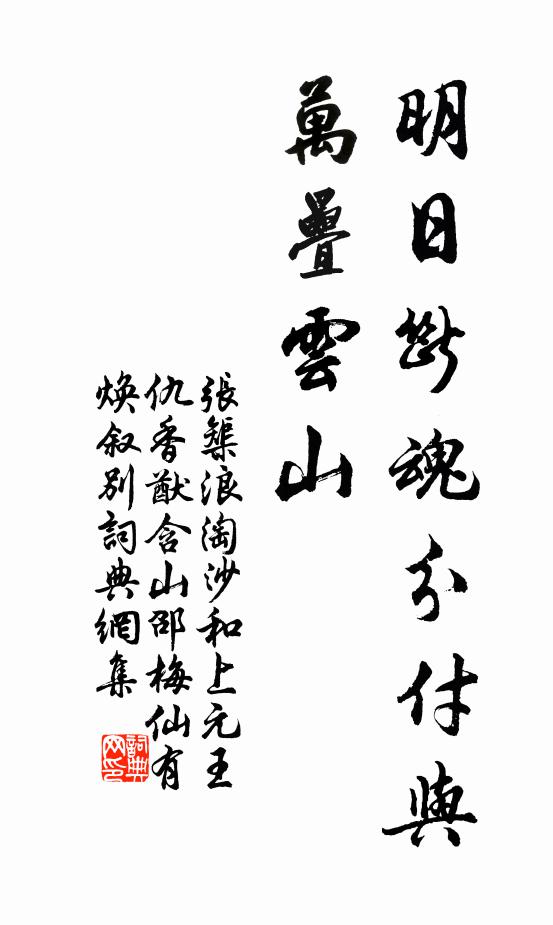 明日斷魂分付與
萬疊雲山
張榘浪淘沙和上元王
仇香猷含山邵梅仙有
煥叙別詞典網集
詞典
网印